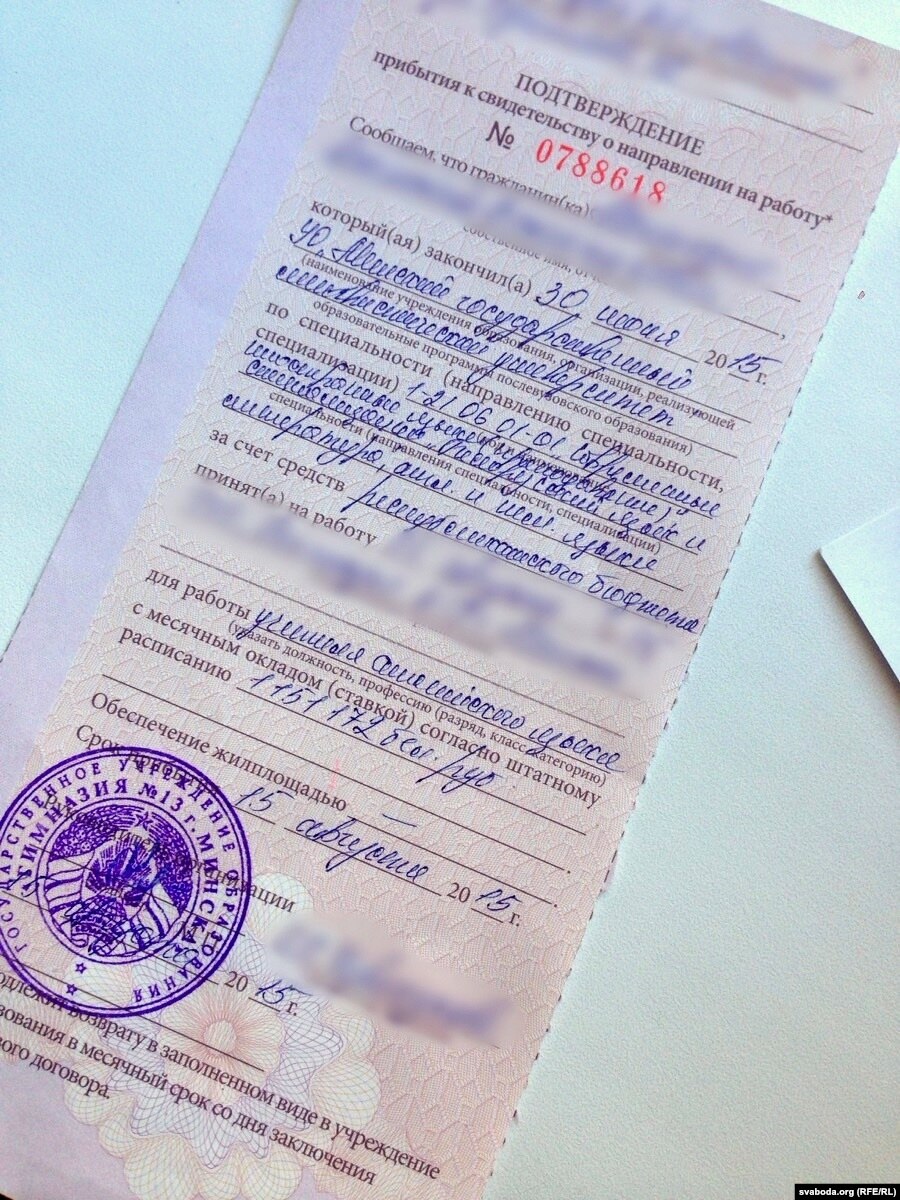 ПОДТВЕРЖДЕНИЕ
прибытия к свидетельству о направлении на работу*
№ 0788618
Сообщаем, что гражданин(ка)
который(ая) закончил(а) 30 июня 2015 г.
УО "Минский государственный
(наименование учреждения образования, организации, реализующей
лингвистический университет
образовательные программы послевузовского образования)
по специальности (направлению специальности,
специализации) 1-21 06 01-01 Современные
иностранные языки (преподавание)
специальности (направления специальности, специализации)
литература, англ. и языки
за счет средств республиканского бюджета
принят(а) на работу
для работы учителя английского языка
(указать должность, профессию (разряд, класс, категорию)
с месячным окладом (ставкой) согласно штатному
расписанию 1151172 бел. руб.
Обеспечение жилплощадью —
Срок прибытия 15 августа 2015 г.
Руководитель организации
2015 г.
ГОСУДАРСТВЕННОЕ УЧРЕЖДЕНИЕ ОБРАЗОВАНИЯ
ГИМНАЗИЯ №13 г. МИНСКА
возврату в заполненном виде в учреждение
в месячный срок со дня заключения
договора.
svaboda.org (RFE/RL)